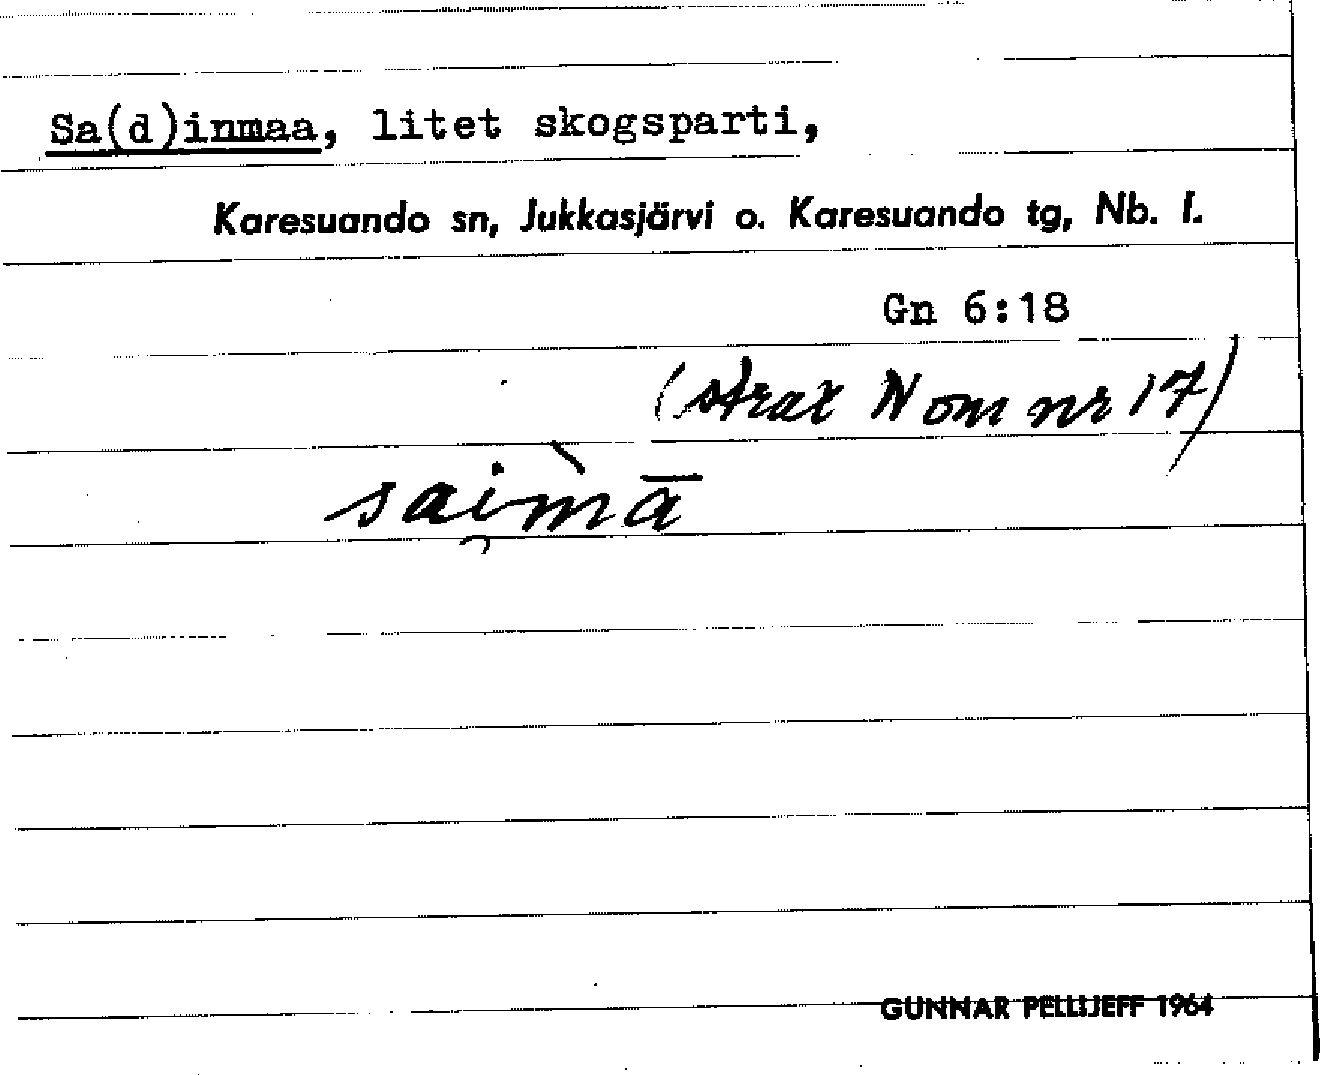 Sa(d)inmaa, litet skogsparti,
Karesuando sn, Jukkasjärvi o. Karesuando tg, Nb. l.
Gn 6:18
(strax N om nr 17)
sai̯m̀ā
GUNNAR PELLIJEFF 1964